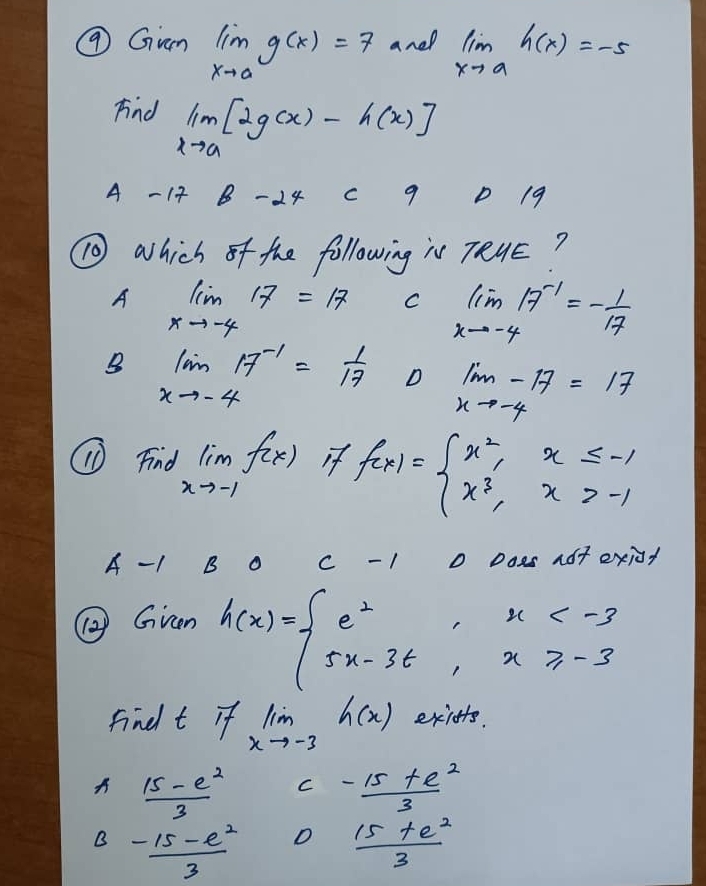 ⑨ Given lim g(x) = 7 and lim h(x) = -5
x→a x→a
Find lim [2g(x) - h(x)]
x→a
A -17 B -24 C 9 D 19
⑩ Which of the following is TRUE ?
A lim 17 = 17 C lim 17⁻¹ = -1/17
x→-4 x→-4
B lim 17⁻¹ = 1/17 D lim -17 = 17
x→-4 x→-4
⑪ Find lim f(x) if f(x) = { x², x ≤ -1
x→-1 x³, x > -1
A -1 B 0 C -1 D Does not exist
⑫ Given h(x) = { e² , x < -3
5x - 3t , x ⩾ -3
Find t if lim h(x) exists.
x→-3
A (15 - e²)/3 C (-15 + e²)/3
B (-15 - e²)/3 D (15 + e²)/3